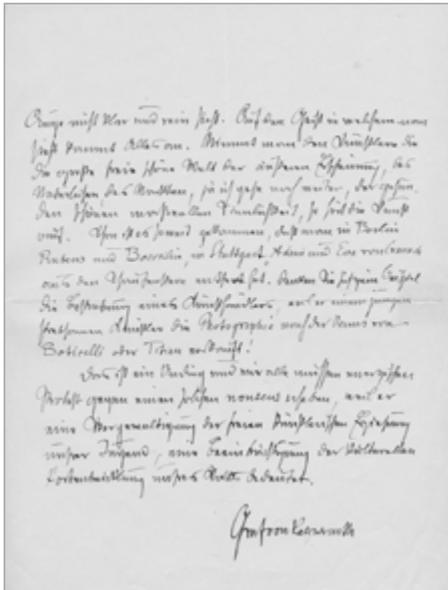 Auge nicht klar und rein sieht. Auf den Geist in welchem man
sieht kommt Alles an. Nimmt man dem Künstler die
die große freie schöne Welt der äußeren Erscheinung, des
Natürlichen des Nackten, ja ich gehe noch weiter, der gesun
den schönen Sinnlichkeit, so hört die Kunst
auf. Schon ist es soweit gekommen, daß man in Berlin
Rubens und in Stuttgart Adam und Eva von
aus den Schaufenstern entfernt hat. Denken Sie sich
die Bestrafung eines Kunsthändlers, weil er einem jungen
strebsamen Künstler die Photographie nach der Venus von
Boticelli oder Tizian verkauft!
Das ist ein Unding und wir alle müssen energischen
Protest gegen einen solchen nonsens erheben, weil er
eine Vergewaltigung der freien künstlerischen Erziehung
unsrer Jugend, eine Beeinträchtigung der kulturellen
Fortentwicklung unseres Volks bedeutet.
Graf von Kalckreuth